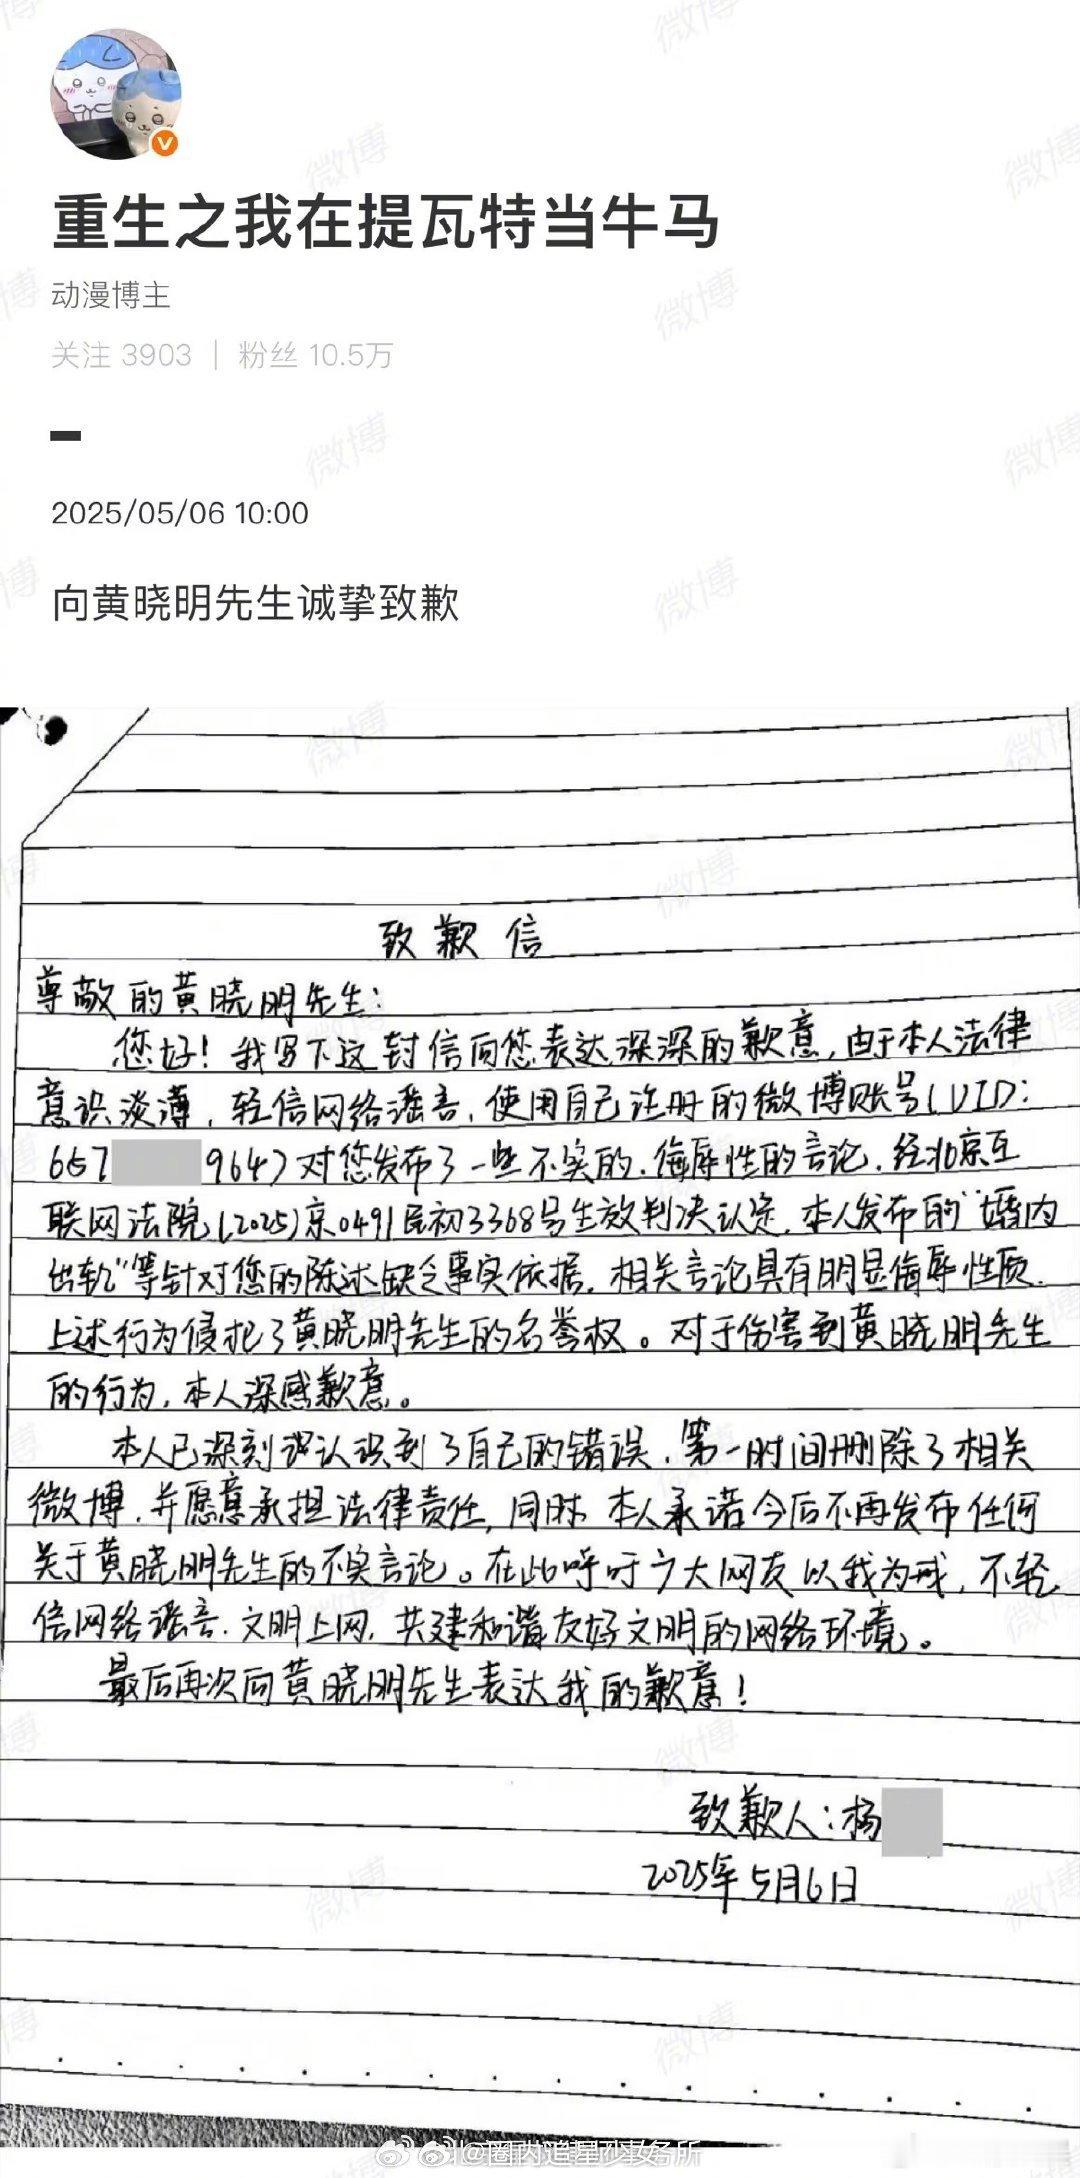 重生之我在提瓦特当牛马
动漫博主
关注 3903 | 粉丝 10.5万
2025/05/06 10:00
向黄晓明先生诚挚致歉
致歉信
尊敬的黄晓明先生：
您好！我写下这封信向您表达深深的歉意，由于本人法律
意识淡薄，轻信网络谣言，使用自己注册的微博账号（UID：
657 9647）对您发布了一些不实的、侮辱性的言论，经北京互
联网法院（2025）京0491民初3368号生效判决认定，本人发布的“婚内
出轨”等针对您的陈述缺乏事实依据，相关言论具有明显侮辱性质，
上述行为侵犯了黄晓明先生的名誉权。对于伤害到黄晓明先生
的行为，本人深感歉意。
本人已深刻认识到了自己的错误，第一时间删除了相关
微博，并愿意承担法律责任，同时，本人承诺今后不再发布任何
关于黄晓明先生的不实言论。在此呼吁广大网友以我为戒，不轻
信网络谣言，文明上网，共建和谐友好文明的网络环境。
最后再次向黄晓明先生表达我的歉意！
致歉人：杨
2025年5月6日
@圈内追星少女
务所
微博